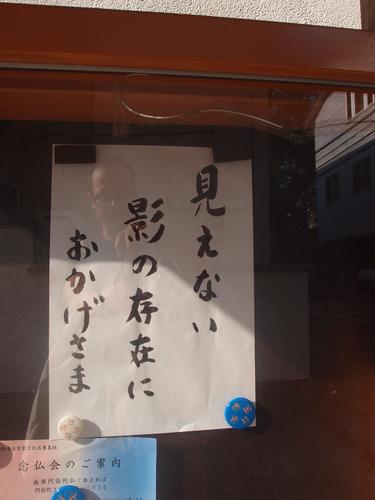 見えない
影の存在に
おかげさま
念仏会のご案内
南無阿弥陀仏と称えれば